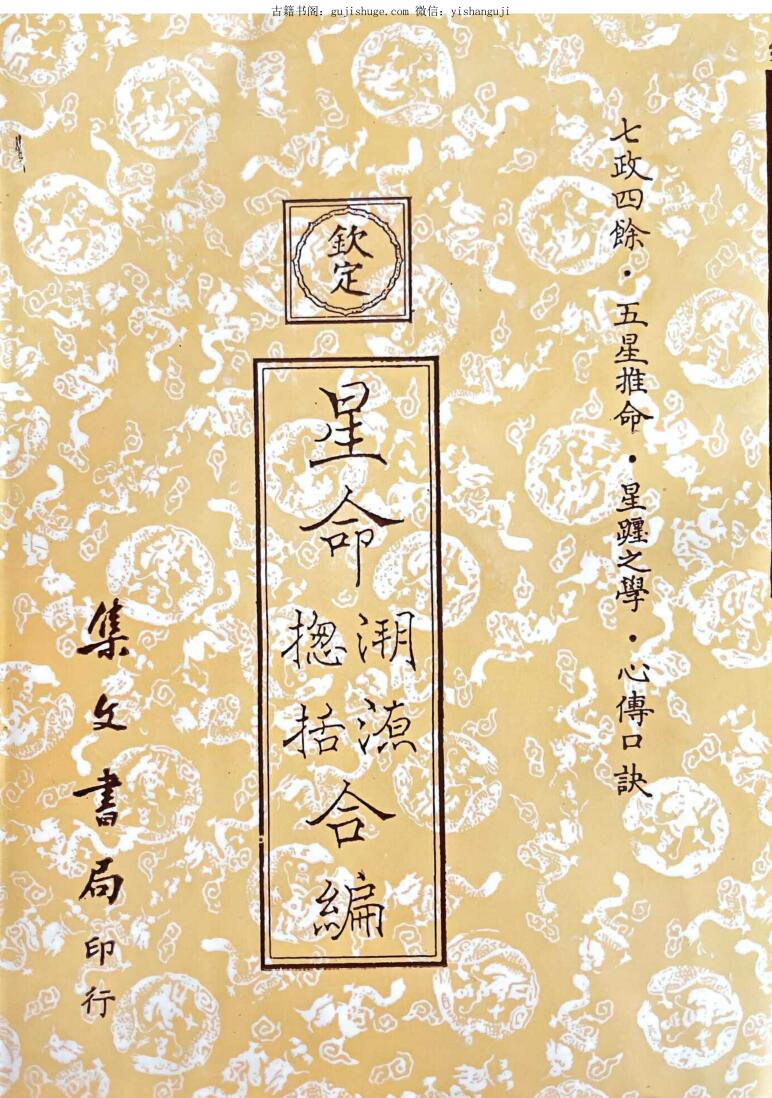 古籍书阁：gujishuge.com 微信：yishanguji
七政四餘・五星推命・星躔之學・心傳口訣
欽定
星命溯源揔括合編
集文書局印行